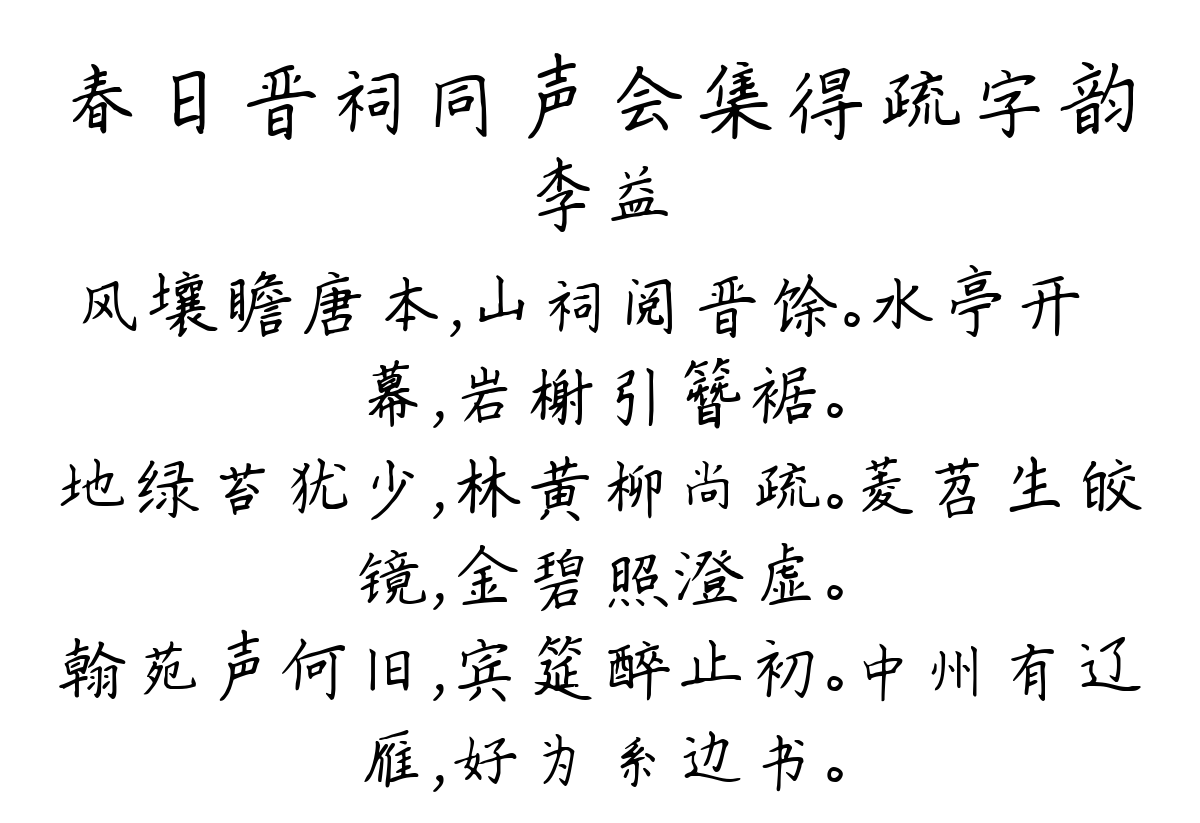 春日晋祠同声会集得疏字韵
李益
风壤瞻唐本,山祠阅晋馀。水亭开
幕,岩榭引簪裾。
地绿苔犹少,林黄柳尚疏。菱苕生皎
镜,金碧照澄虚。
翰苑声何旧,宾筵醉止初。中州有辽
雁,好为系边书。